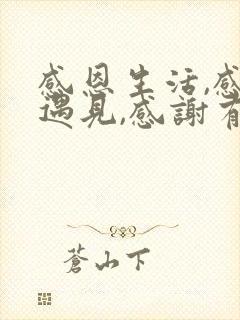 感恩生活,感
遇見,感謝有
蒼山下